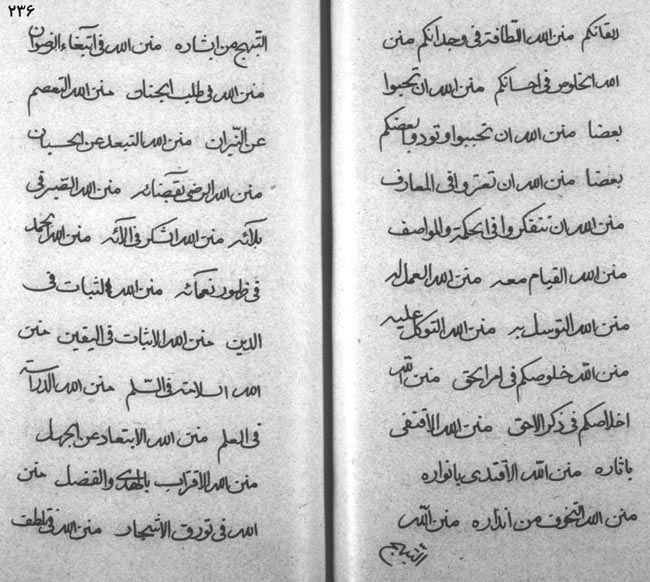 ۲۳۶
ایقانکم منن الله اللطافة فی وجدانکم منن
الله الخلوص فی احسانکم منن الله ان تحبوا
بعضا منن الله ان تحببوا و تودوا بعضکم
بعضا منن الله ان تعززوا فی المعارف
منن الله ان تتفکروا فی الحکمة والمواصف
منن الله القیام معه منن الله العمل له
منن الله التوسل به منن الله التوکل علیه
منن الله خلوصکم فی امر الحق منن الله
اخلاصکم فی ذکر الاحق منن الله الاقتفی
باثاره منن الله الاقتدی بانواره
منن الله التخوف من انذاره منن الله
التبهج من ابشاره منن الله فی ابتغاء الرضوان
منن الله فی طلب الجنان منن الله التعصم
عن النیران منن الله التبعد عن الحسبان
منن الله الرضی بقضائه منن الله الصبر فی
بلائه منن الله الشکر فی آلائه منن الله الحمد
فی ظهور نعمائه منن الله الثبات فی
الدین منن الله الاثبات فی الیقین منن
الله السلامة فی السلم منن الله الدرایة
فی العلم منن الله الابتعاد عن الجهل
منن الله الاقراب بالهدی والفضل منن
الله فی تورق الاشجار منن الله فی تلطف